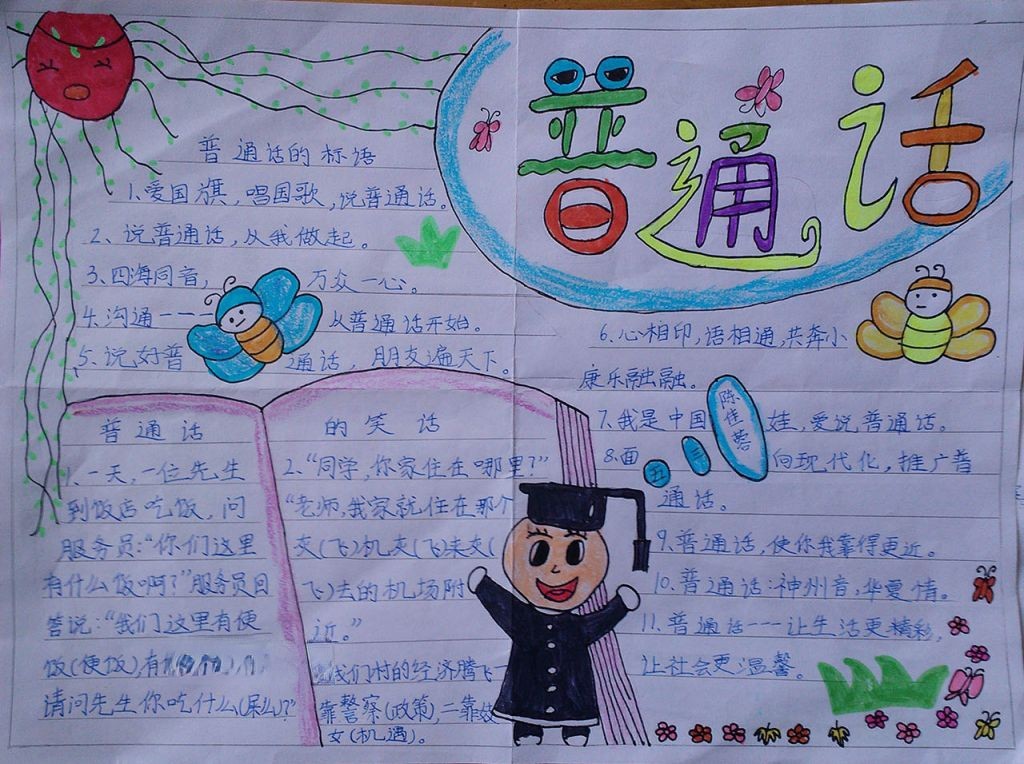 普通话
普通话的标语
1.爱国旗,唱国歌,说普通话。
2、说普通话,从我做起。
3、四海同音,万众一心。
4.沟通---从普通话开始。
5、说好普通话,朋友遍天下。
6.心相印,语相通,共奔小
康乐融融。
7.我是中国娃,爱说普通话。
8.面向现代化,推广普
通话。
9.普通话,使你我靠得更近。
10.普通话:神州音,华夏情。
11.普通话---让生活更精彩,
让社会更温馨。
陈佳蓉
五
普通话的笑话
1.一天,一位先生
到饭店吃饭,问
服务员:“你们这里
有什么饭啊?”服务员回
答说:“我们这里有便
饭(便饭),有
请问先生你吃什么
2.“同学,你家住在哪里?”
“老师,我家就住在那个
夹(飞)机夹(飞)来夹(
飞)去的机场附
近。”
我们村的经济腾飞一
靠警察(政策),二靠妓
女(机遇)。